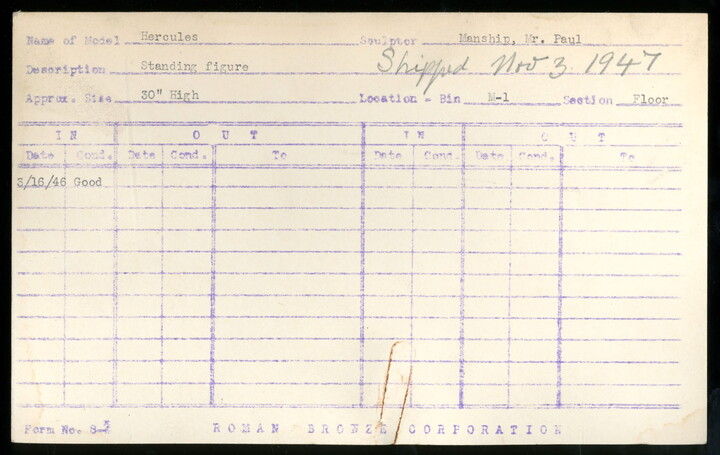 Name of Model Hercules Sculptor Manship, Mr. Paul
Description Standing figure Shipped Nov 3. 1947
Approx. Size 30" High Location - Bin M-1 Section Floor
IN OUT IN OUT
Date Cond. Date Cond. To Date Cond. Date Cond. To
3/16/46 Good
Form No. 8-
ROMAN BRONZE CORPORATION